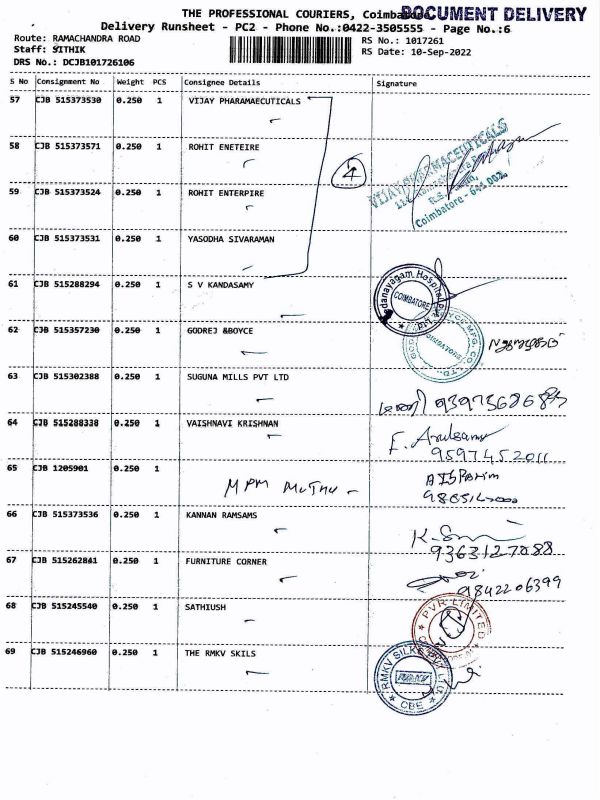 THE PROFESSIONAL COURIERS, Coimbatore
DOCUMENT DELIVERY
Delivery Runsheet - PC2 - Phone No.:0422-3505555 - Page No.:6
Route: RAMACHANDRA ROAD
RS No.: 1017261
Staff: SITHIK
RS Date: 10-Sep-2022
DRS No.: DCJB101726106
S No Consignment No Weight PCS Consignee Details Signature
57 CJB 515373530 0.250 1 VIJAY PHARAMAECUTICALS
58 CJB 515373571 0.250 1 ROHIT ENETEIRE
4
VIJAY PHARMACEUTICALS
Coimbatore - 641 002.
59 CJB 515373524 0.250 1 ROHIT ENTERPIRE
60 CJB 515373531 0.250 1 YASODHA SIVARAMAN
61 CJB 515288294 0.250 1 S V KANDASAMY
COIMBATORE
62 CJB 515357230 0.250 1 GODREJ &BOYCE
COIMBATORE
63 CJB 515302388 0.250 1 SUGUNA MILLS PVT LTD
64 CJB 515288338 0.250 1 VAISHNAVI KRISHNAN
9597452011
65 CJB 1205901 0.250 1
MPM MUTHU -
66 CJB 515373536 0.250 1 KANNAN RAMSAMS
9363127888
67 CJB 515262841 0.250 1 FURNITURE CORNER
9842206399
68 CJB 515245540 0.250 1 SATHIUSH
PVR LIMITED
69 CJB 515246960 0.250 1 THE RMKV SKILS
RMKV SILKS PVT. LTD.
RMKV
CBE